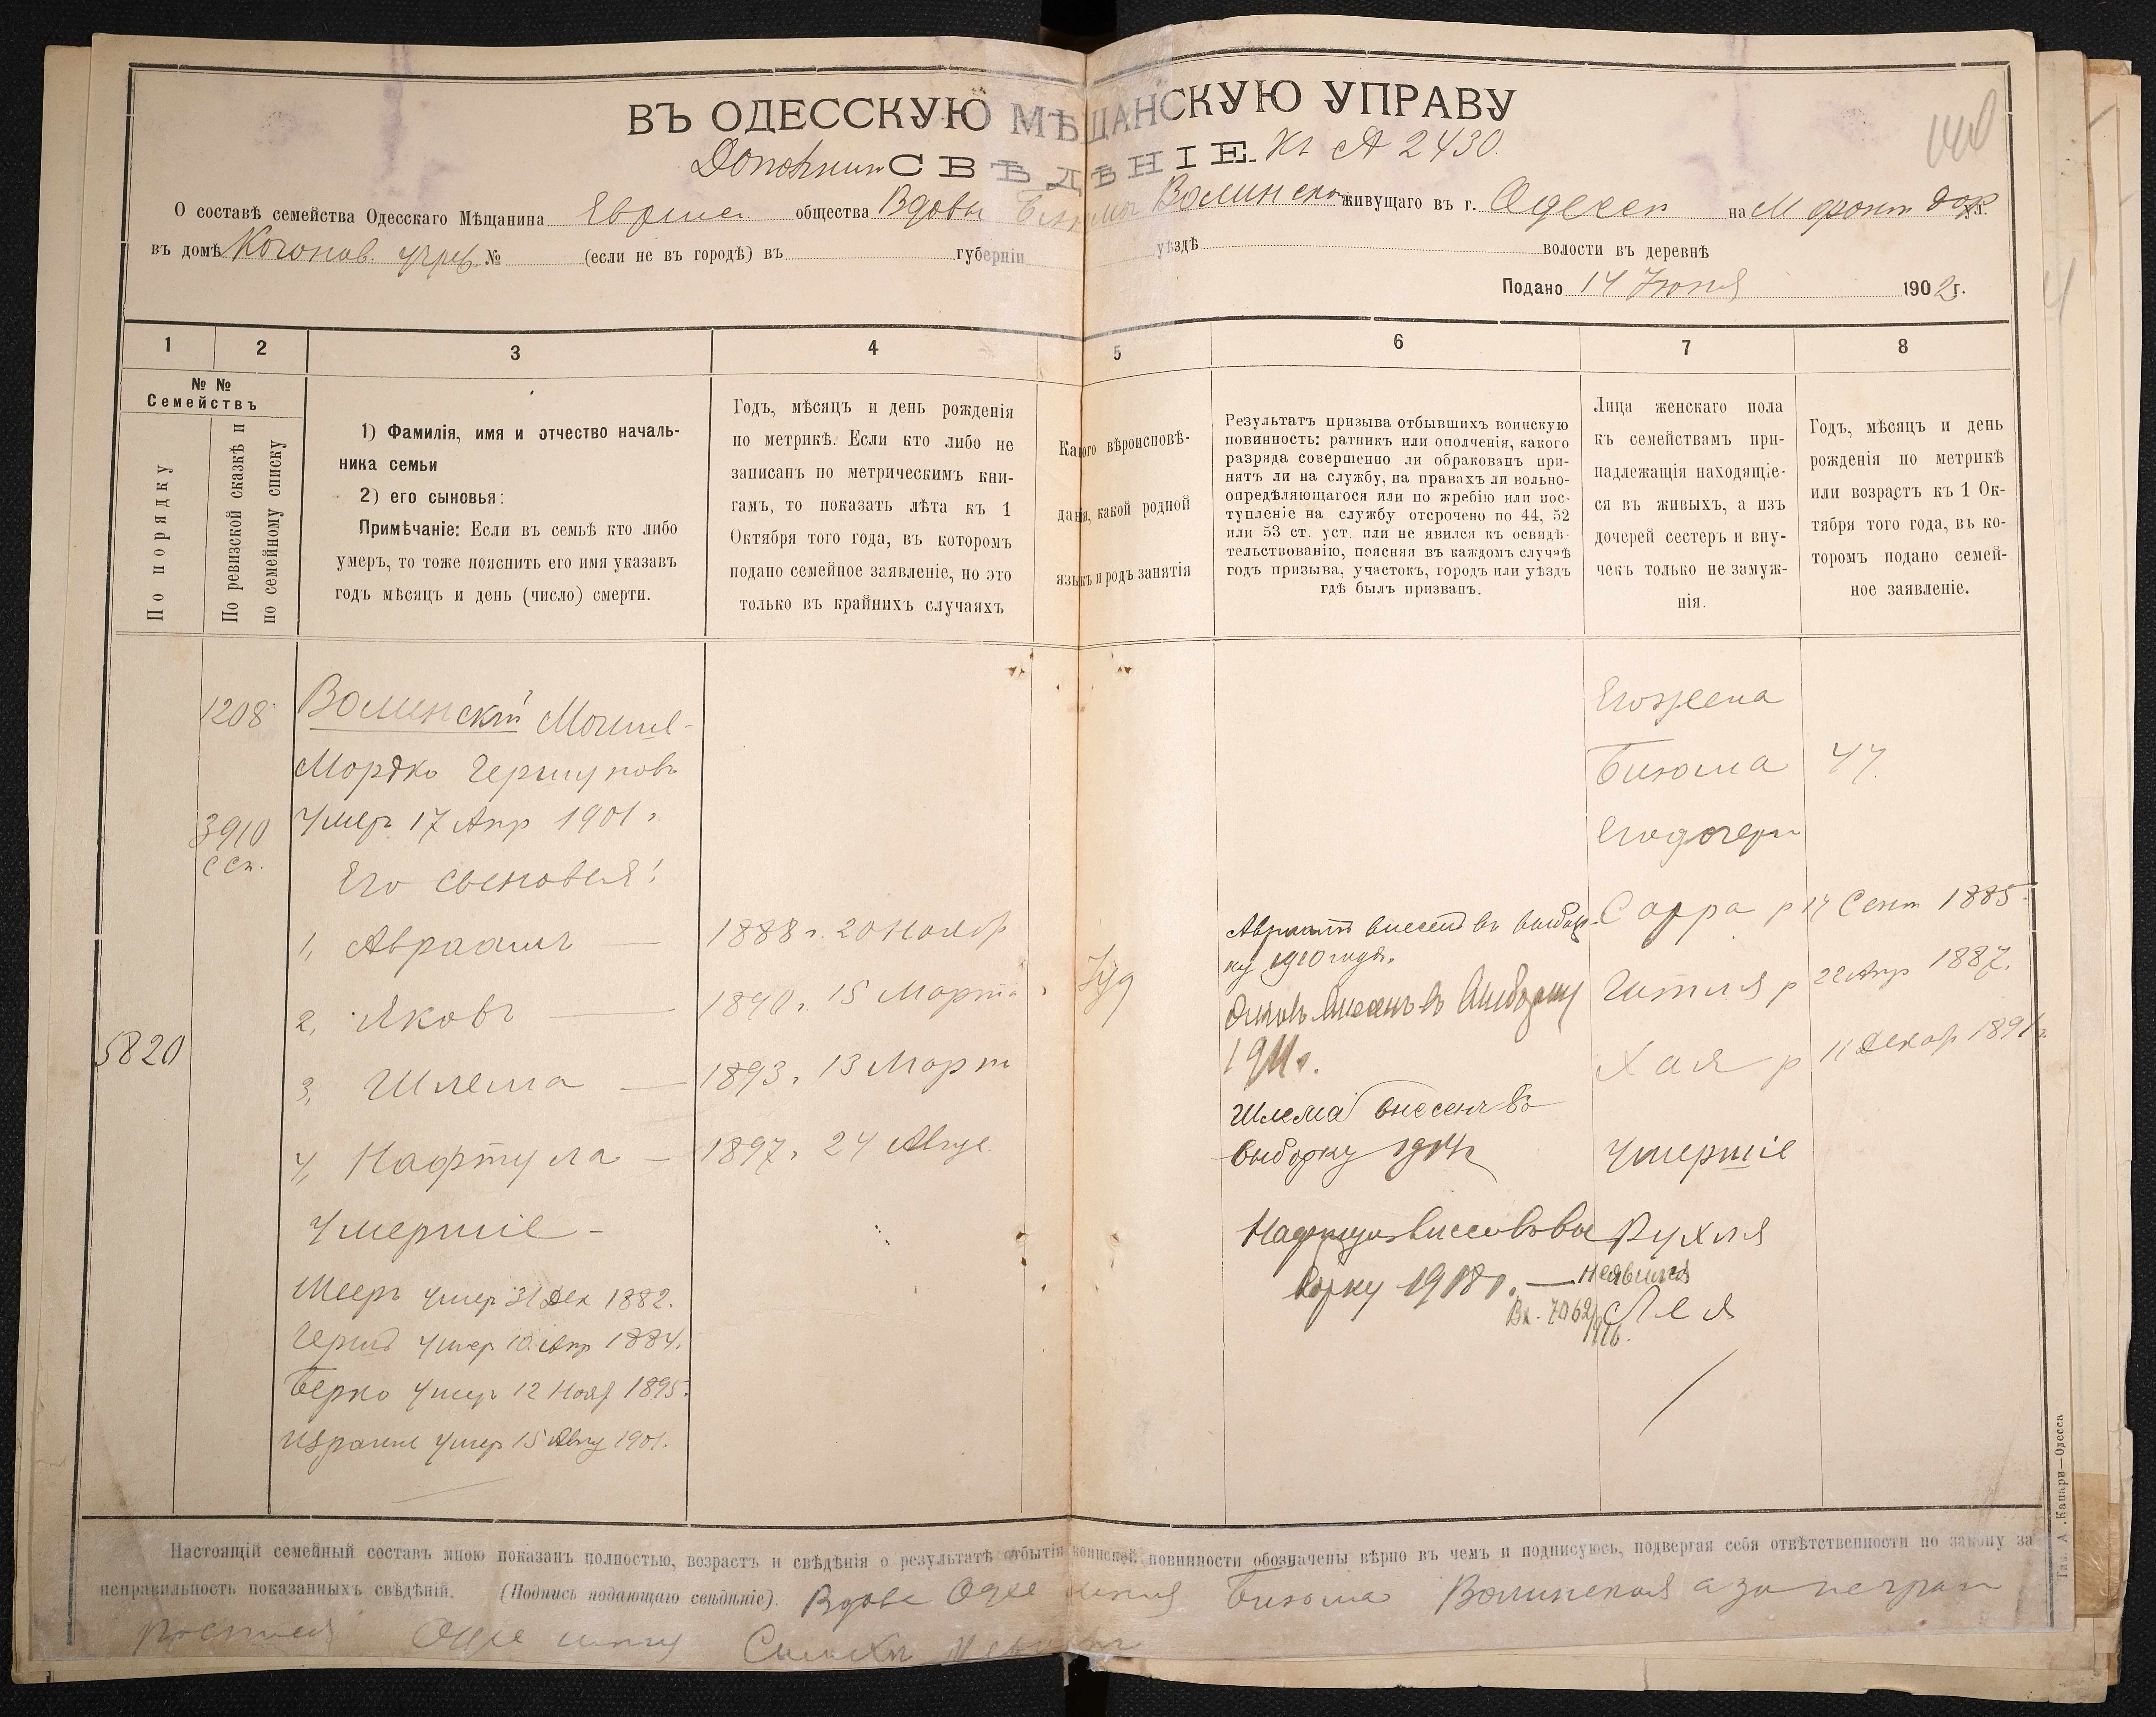 ВЪ ОДЕССКУЮ МѢЩАНСКУЮ УПРАВУ
СВѢДѢНІЕ. Къ № 2430.
О составѣ семейства Одесскаго Мѣщанина общества Вдовы Волинск живущаго въ г. Одессѣ на дор
въ домѣ № (если не въ городѣ) въ губерніи уѣздѣ волости въ деревнѣ
Подано 14 Іюня 1902 г.
1 2 3 4 5 6 7 8
№ №
Семействъ
По порядку
По ревизской сказкѣ и
по семейному списку
1) Фамилія, имя и отчество началь-
ника семьи
2) его сыновья:
Примѣчаніе: Если въ семьѣ кто либо
умеръ, то тоже пояснить его имя указавъ
годъ мѣсяцъ и день (число) смерти.
Годъ, мѣсяцъ и день рожденія
по метрикѣ. Если кто либо не
записанъ по метрическимъ кни-
гамъ, то показать лѣта къ 1
Октября того года, въ которомъ
подано семейное заявленіе, но это
только въ крайнихъ случаяхъ
Какого вѣроисповѣ-
данія, какой родной
языкъ и родъ занятія
Результатъ призыва отбывшихъ воинскую
повинность: ратникъ или ополченія, какого
разряда совершенно ли обракованъ при-
нятъ ли на службу, на правахъ ли вольно-
опредѣляющагося или по жребію или пос-
тупленіе на службу отсрочено по 44, 52
или 53 ст. уст. или не явился къ освидѣ-
тельствованію, поясняя въ каждомъ случаѣ
годъ призыва, участокъ, городъ или уѣздъ
гдѣ былъ призванъ.
Лица женскаго пола
къ семействамъ при-
надлежащія находящіе-
ся въ живыхъ, а изъ
дочерей сестеръ и вну-
чекъ только не замуж-
нія.
Годъ, мѣсяцъ и день
рожденія по метрикѣ
или возрастъ къ 1 Ок-
тября того года, въ ко-
торомъ подано семей-
ное заявленіе.
1208
3910
5820
Волинскій Мошко-
Мордко Гершуновъ
Умеръ 17 Апр 1901 г.
Его сыновья:
1, Авраамъ — 1888 г. 20 Нояб
2, Яковъ — 1890 г. 15 Марта
3, Шлема — 1893 г. 13 Март
4, Нафтула — 1897 г. 24 Авгус
Умершіе —
Мееръ умер 31 Дек 1882.
Герш умер 10 Апр 1884.
Берко умер 12 Нояб 1895.
Израиль умер 15 Авгу 1901.
Іуд
Авраамъ внесенъ въ выбор-
ку 1910 года.
Яковъ внесенъ въ выборку
1911 г.
Шлема внесенъ въ
выборку 1914 г
Нафтула внесенъ въ вы
борку 1918 г. — Неявился
Вх. 7062
1916.
Его жена
Бизюма 47.
Его дочери
Сарра р 17 Сент 1885
Гитля р 22 Апр 1887.
Хая р 11 Декаб 1891 г
Умершіе
Рухля
Лея
Настоящій семейный составъ мною показанъ полностью, возрастъ и свѣдѣнія о результатѣ отбытія воинской повинности обозначены вѣрно въ чемъ и подписуюсь, подвергая себя отвѣтственности по закону за
неправильность показанныхъ свѣдѣній. (Подпись подающаго свѣдѣніе). Вдова Бизюма Волинская а за неграм
Тип. А. Капари—Одесса